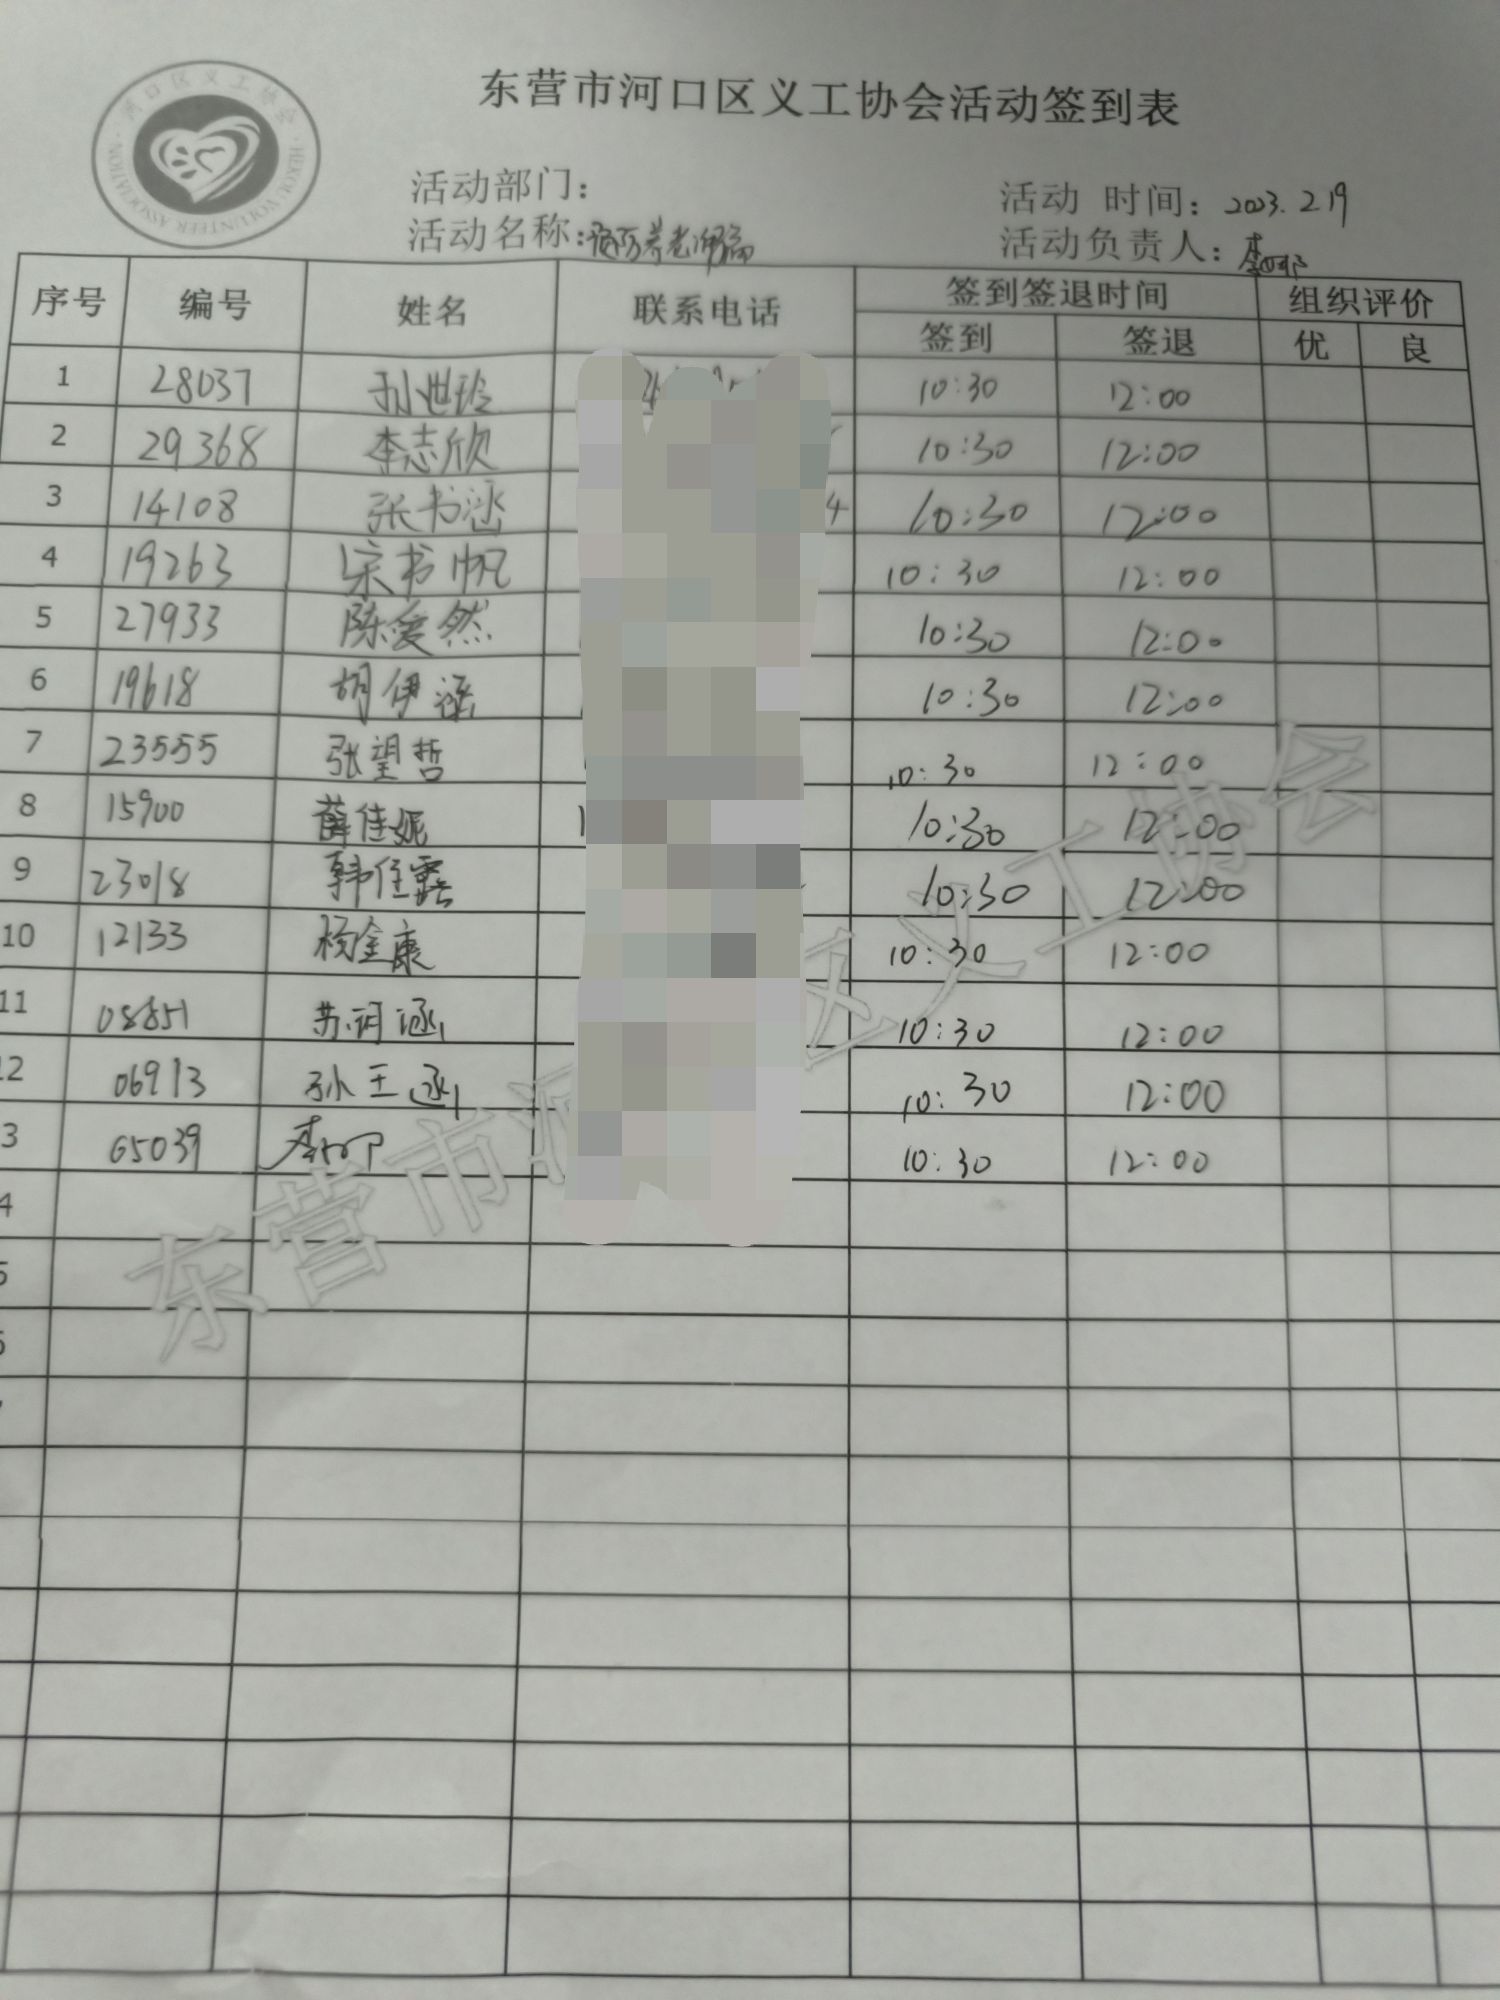 河口区义工协会
HEKOU VOLUNTEER ASSOCIATION
东营市河口区义工协会活动签到表
活动部门：
活动 时间：2023.2.19
活动名称：预防养老诈骗
活动负责人：
序号 编号 姓名 联系电话 签到签退时间 组织评价
签到 签退 优 良
1 28037 孙世玲 10:30 12:00
2 29368 李志欣 10:30 12:00
3 14108 张书涵 4 10:30 12:00
4 19263 宋书帆 10:30 12:00
5 27933 陈爱然 10:30 12:00
6 19618 胡伊涵 10:30 12:00
7 23555 张望哲 10:30 12:00
8 15900 薛佳妮 10:30 12:00
9 23018 韩佳露 10:30 12:00
10 12133 杨金康 10:30 12:00
11 08851 苏玥涵 10:30 12:00
12 06913 孙王涵 10:30 12:00
3 65039 10:30 12:00
4
5
6
东营市河口区义工协会